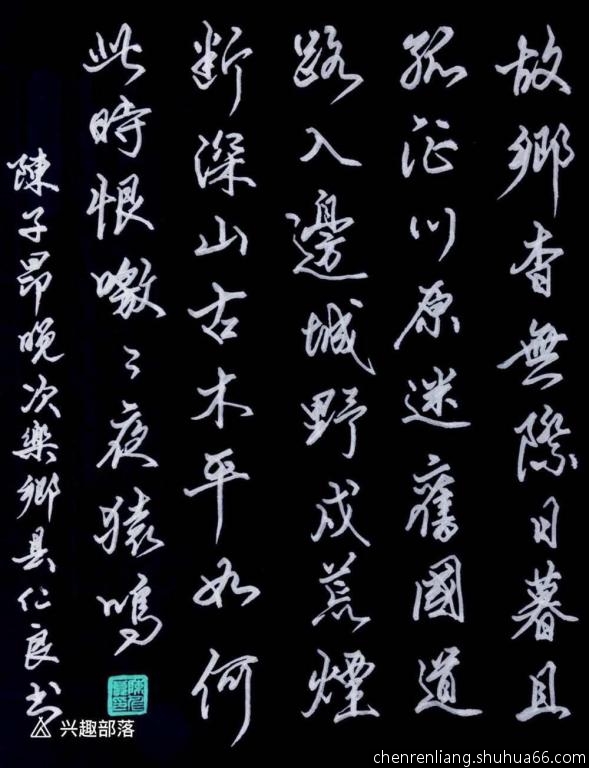 故鄉杳無際日暮且
孤征川原迷舊國道
路入邊城野戍荒煙
断深山古木平如何
此時恨噭々夜猿鳴
陳子昂晚次樂鄉县仁良书
兴趣部落
chenrenliang.shuhua66.com